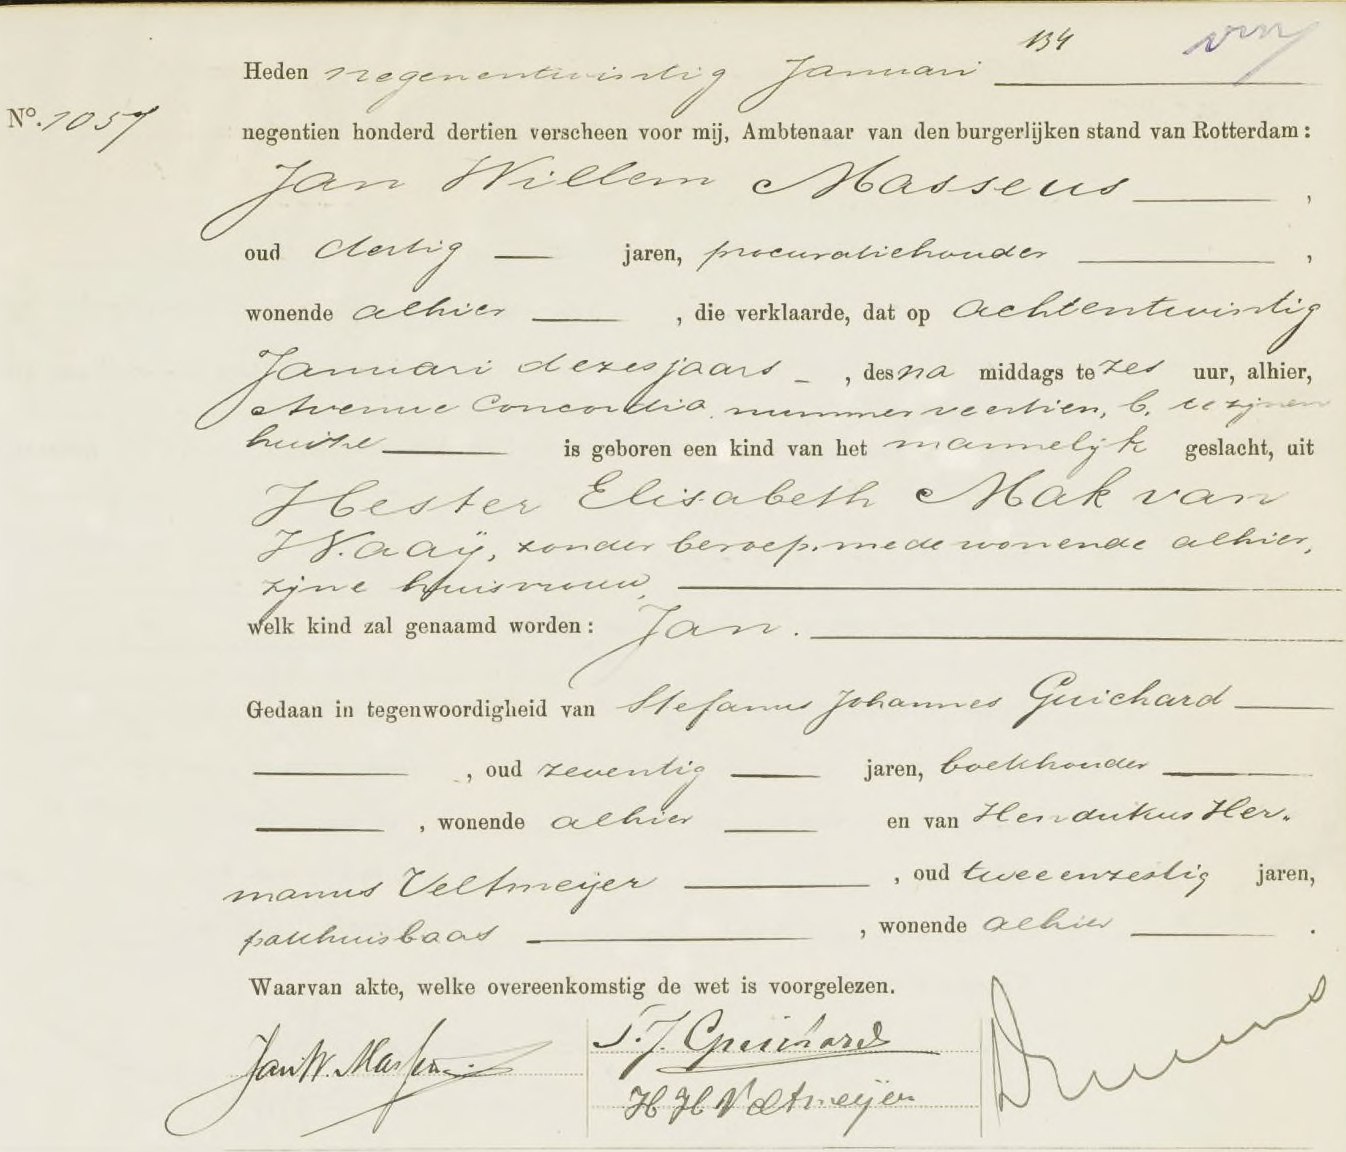 134
Heden negenentwintig Januari
No. 1057
negentien honderd dertien verscheen voor mij, Ambtenaar van den burgerlijken stand van Rotterdam:
Jan Willem Masseus ,
oud dertig jaren, procuratiehouder ,
wonende alhier , die verklaarde, dat op achtentwintig
Januari dezes jaars , des na middags te zes uur, alhier,
Avenue Concordia nummer veertien, b. te zijnen
huize is geboren een kind van het mannelijk geslacht, uit
Hester Elisabeth Mak van
Waaÿ, zonder beroep, mede wonende alhier,
zijne huisvrouw,
welk kind zal genaamd worden: Jan.
Gedaan in tegenwoordigheid van Stefanus Johannes Guichard
, oud zeventig jaren, boekhouder
, wonende alhier en van Hendrikus Her-
manus Veltmeijer , oud tweeenzestig jaren,
pakhuisbaas , wonende alhier .
Waarvan akte, welke overeenkomstig de wet is voorgelezen.
Jan W. Masseus
S. J. Guichard
H H Veltmeijer